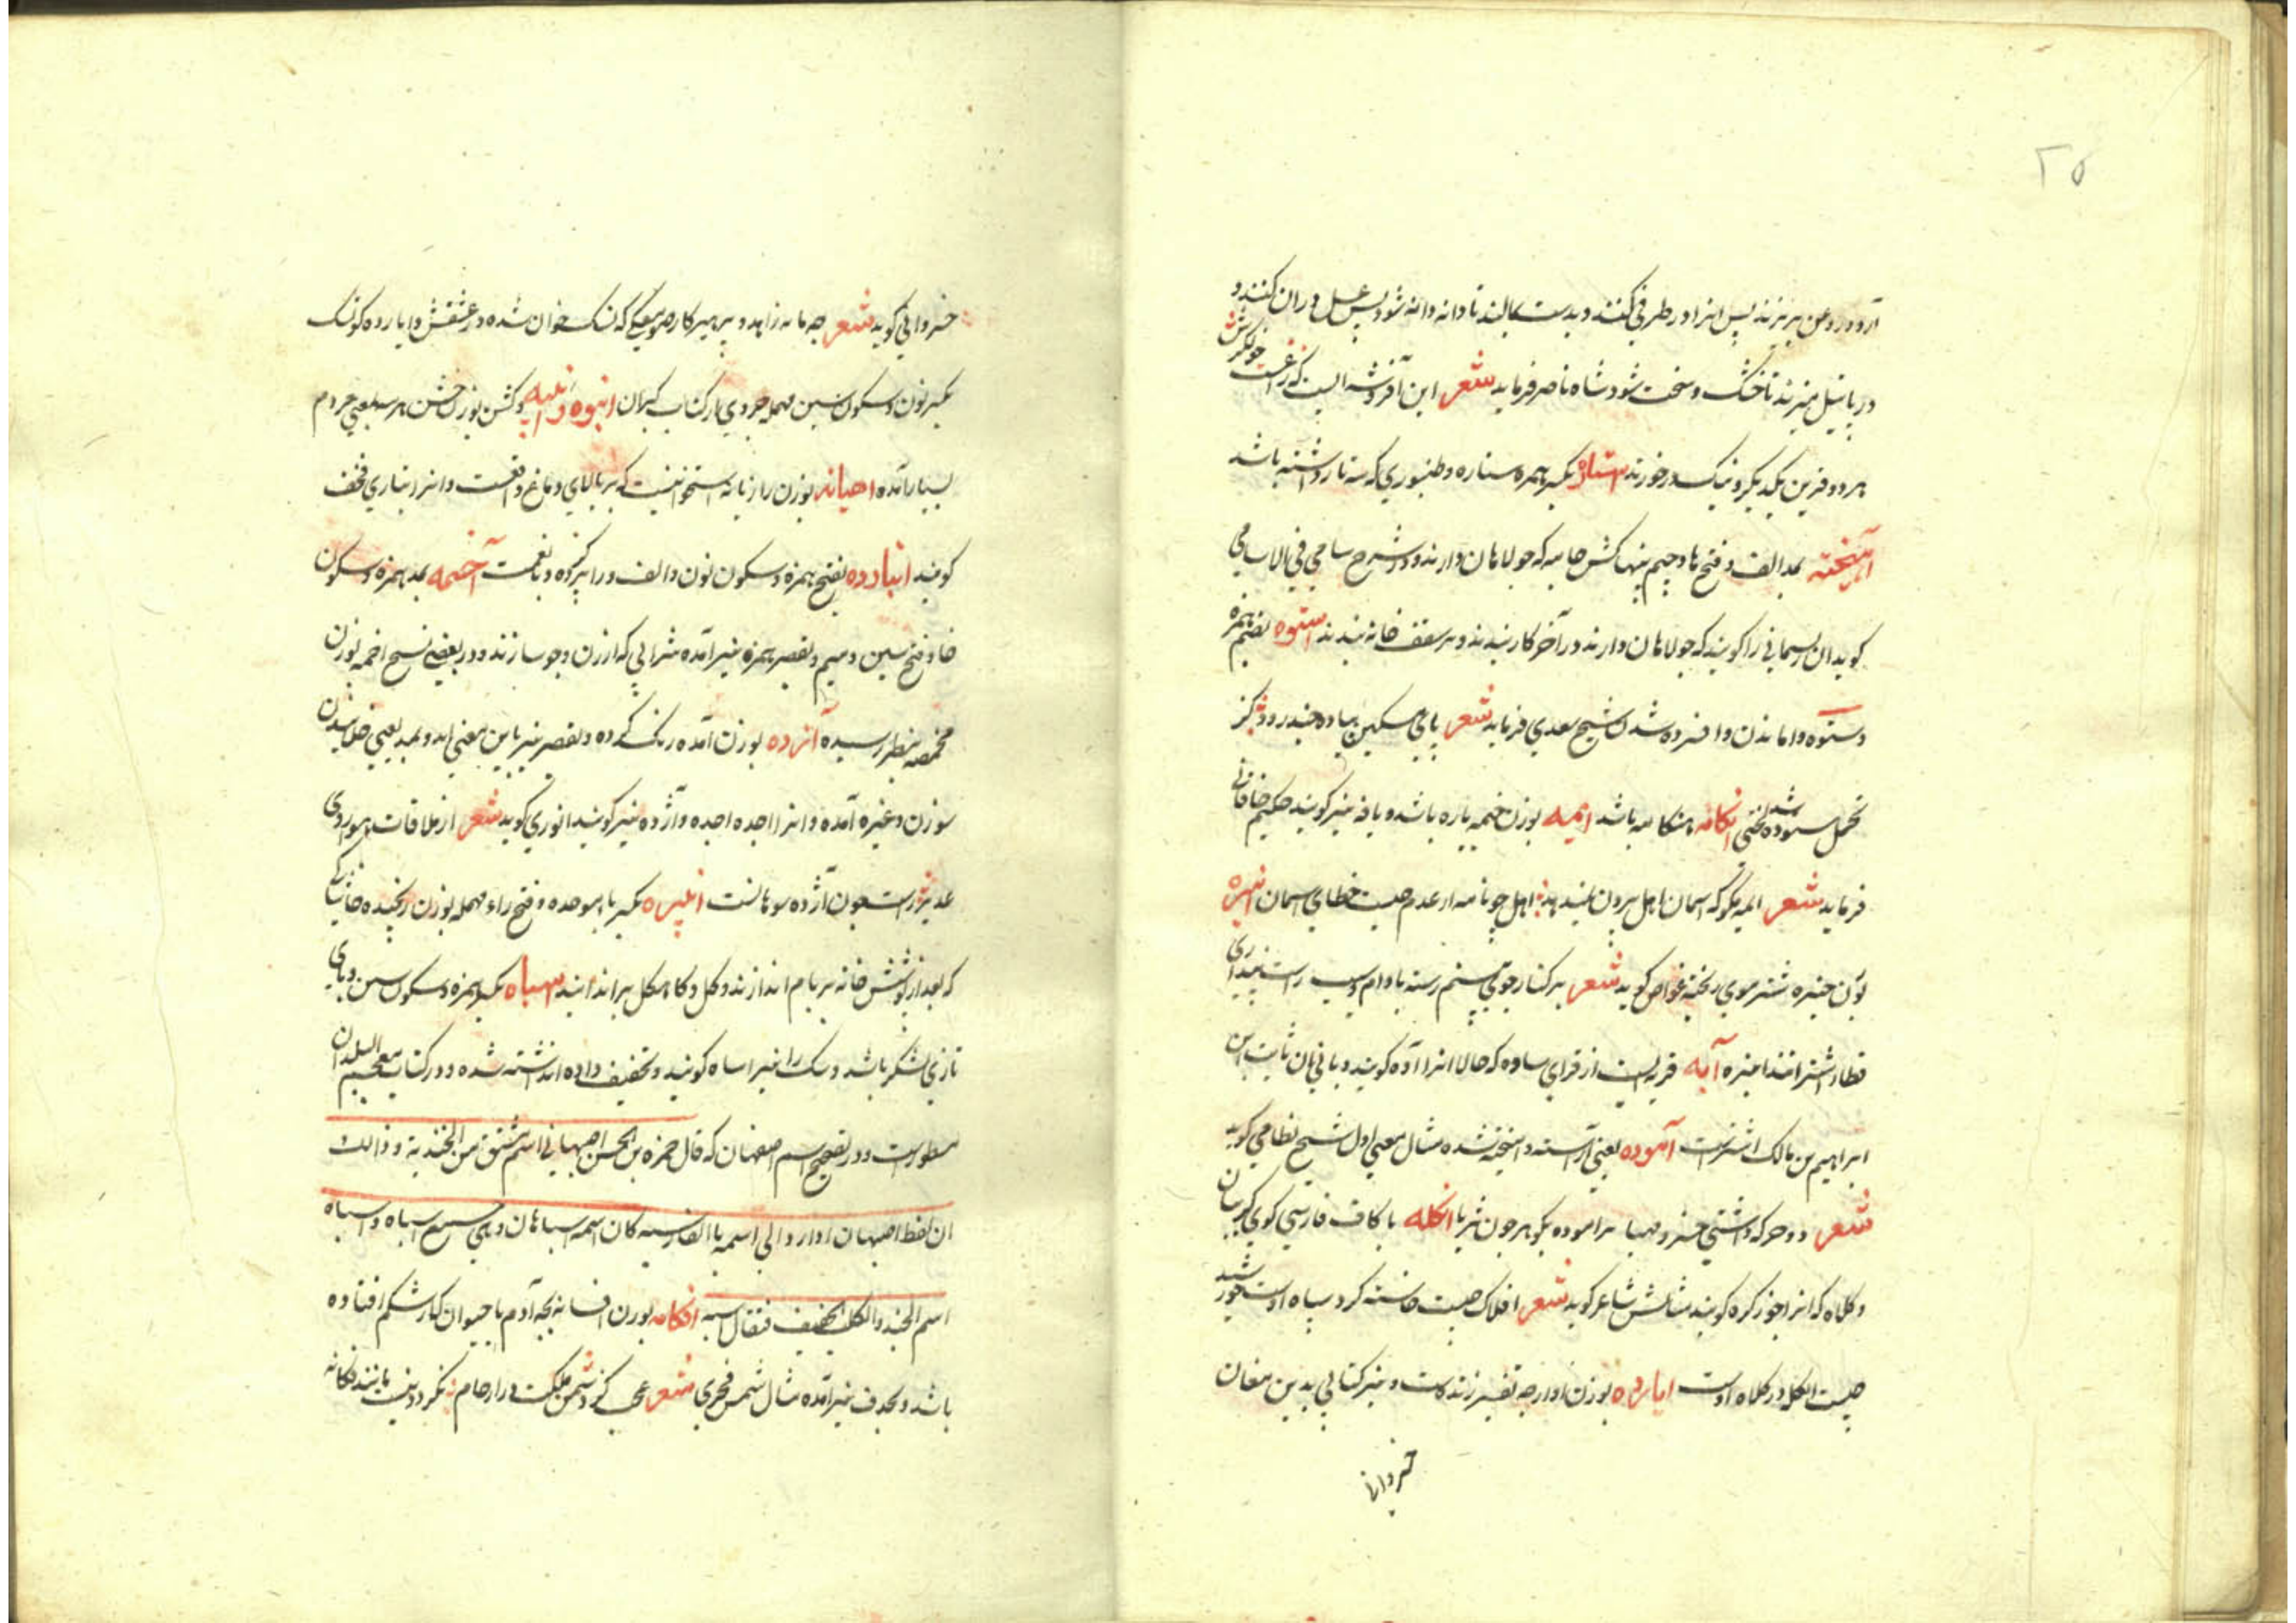 ۲۵
آرد در روغن بریزند پس انرا در ظرفی کنند و بدست بمالند تا دانه دانه شود پس عسل دران کنند و
در پاتیل نیزند تا خشک و سخت شود شاه ناصر فرماید شعر این آفروشه الیست که زاغست خوالیگرش
هر دو قرین یکدیگر و نیک درخورند استاره بکسر همزه ستاره و طنبوری که سه تار داشته باشد
بمد الف و فتح ها و جیم پنهاکش جامه که جولاهان دارند و در شرح سامی فی الاسامی
کوید ان ریسمانی را کویند که جولاهان دارند در آخر کار بندند و بر سقف خانه بندند استوه بضم همزه
و ستوه واماندن و افسرده شدن شیخ سعدی فرماید شعر پای مسکین پیاده چند رود کز
تحمل ستوده شد بختی انکامه هنکامه باشد ایمه بوزن خیمه یاره باشد و یافه نیز کویند حکیم خاقانی
فرماید شعر ایمه مکو که اسمان اهل برون نمیدهد اهل چو نامد از عدم چیست خطای اسمان انیزه
بوزن جیره شتر موی ریخته غواص کوید شعر بر کنار جوی بینم رسته بادام و سیب راست پنداری
قطار اشتر انند انیزه آبه قریه ایست از قرای ساوه که حالا انرا آوه کویند و بانی ان ثابت ابن
ابراهیم بن مالک اشترست آموده یعنی آراسته و امیخته شده مثال معنی اول شیخ نظامی کوید
شعر دو حرکه داشتی خسرو مهیا برآموده بکوهر چون ثریا انکله با کاف فارسی کوی کریبان
و کلاه که انرا جوزکره کویند مثالش شاعر کوید شعر افلاک چیست خاسته کرد سپاه اوست خورشید
چیست انکله در کلاه اوست ایارده بوزن اوارجه تفسیر زندست و نیز کتابی بدین مغان
خسروانی
خسروانی کوید شعر چه مایه زاهد و پرهیزکار صومعکی که نسک خوان شده در عشقش و ایارده کوی نسک
بکسر نون و سکون سین مهمله جزوی از کتاب کبران انبوه و انبیه و کشن بوزن خشن هر سه بمعنی مردم
بسیار آمده احیانه بوزن رازیانه استخوانیست که بر بالای دماغ واقعست و انرا بتازی قحف
کویند انبارده بفتح همزه و سکون نون و الف و را پر کرده و باقیست آخسمه بمد همزه و سکون
خا و فتح سین و میم و بقصر همزه نیز آمده شرابی که از ارزن و جو سازند و در بعضی نسخ اخمه بوزن
مخمصه بنظر رسیده آزده بوزن آمده رنک کرده و بقصر نیز باین معنی اید و بمد بمعنی خلانیدن
سوزن و غیره آمده و انرا اجده اجده و آژده نیز کویند انوری کوید شعر از ملاقات هوا روی
غدیر راست چون آژده سوهانست انبیره بکسر با موحده و فتح راء مهمله بوزن رنجیده خاشاکی
که بعد از پوشش خانه بر بام اندازند و کل و کاهکل بر اندایند اسپاه بکسر همزه و سکون سین و بای
تازی لشکر باشد و سک را نیز اساه کویند و تخفیف داده اند نوشته شده و در کتاب معجم البلدان
مسطورست و در تصحیح اسم اصفهان که قال حمزه بن الحسن اصبهانی اسم مشتق من الجندیه و ذالک
ان لفظ اصبهان اذا رد الی اسمه بالفارسیه کان اسمه سباهان و هی جمع اسباه و اسباه
اسم الجند و الکلب تخفیف فقال اسبه افکانه بوزن افسانه بچه آدم یا حیوان که از شکم افتاده
باشد و بحذف نیز آمده مثال شمس فخری شعر عجب کر دشمن ملکت در ارحام نکردد نیست مانند فکانه